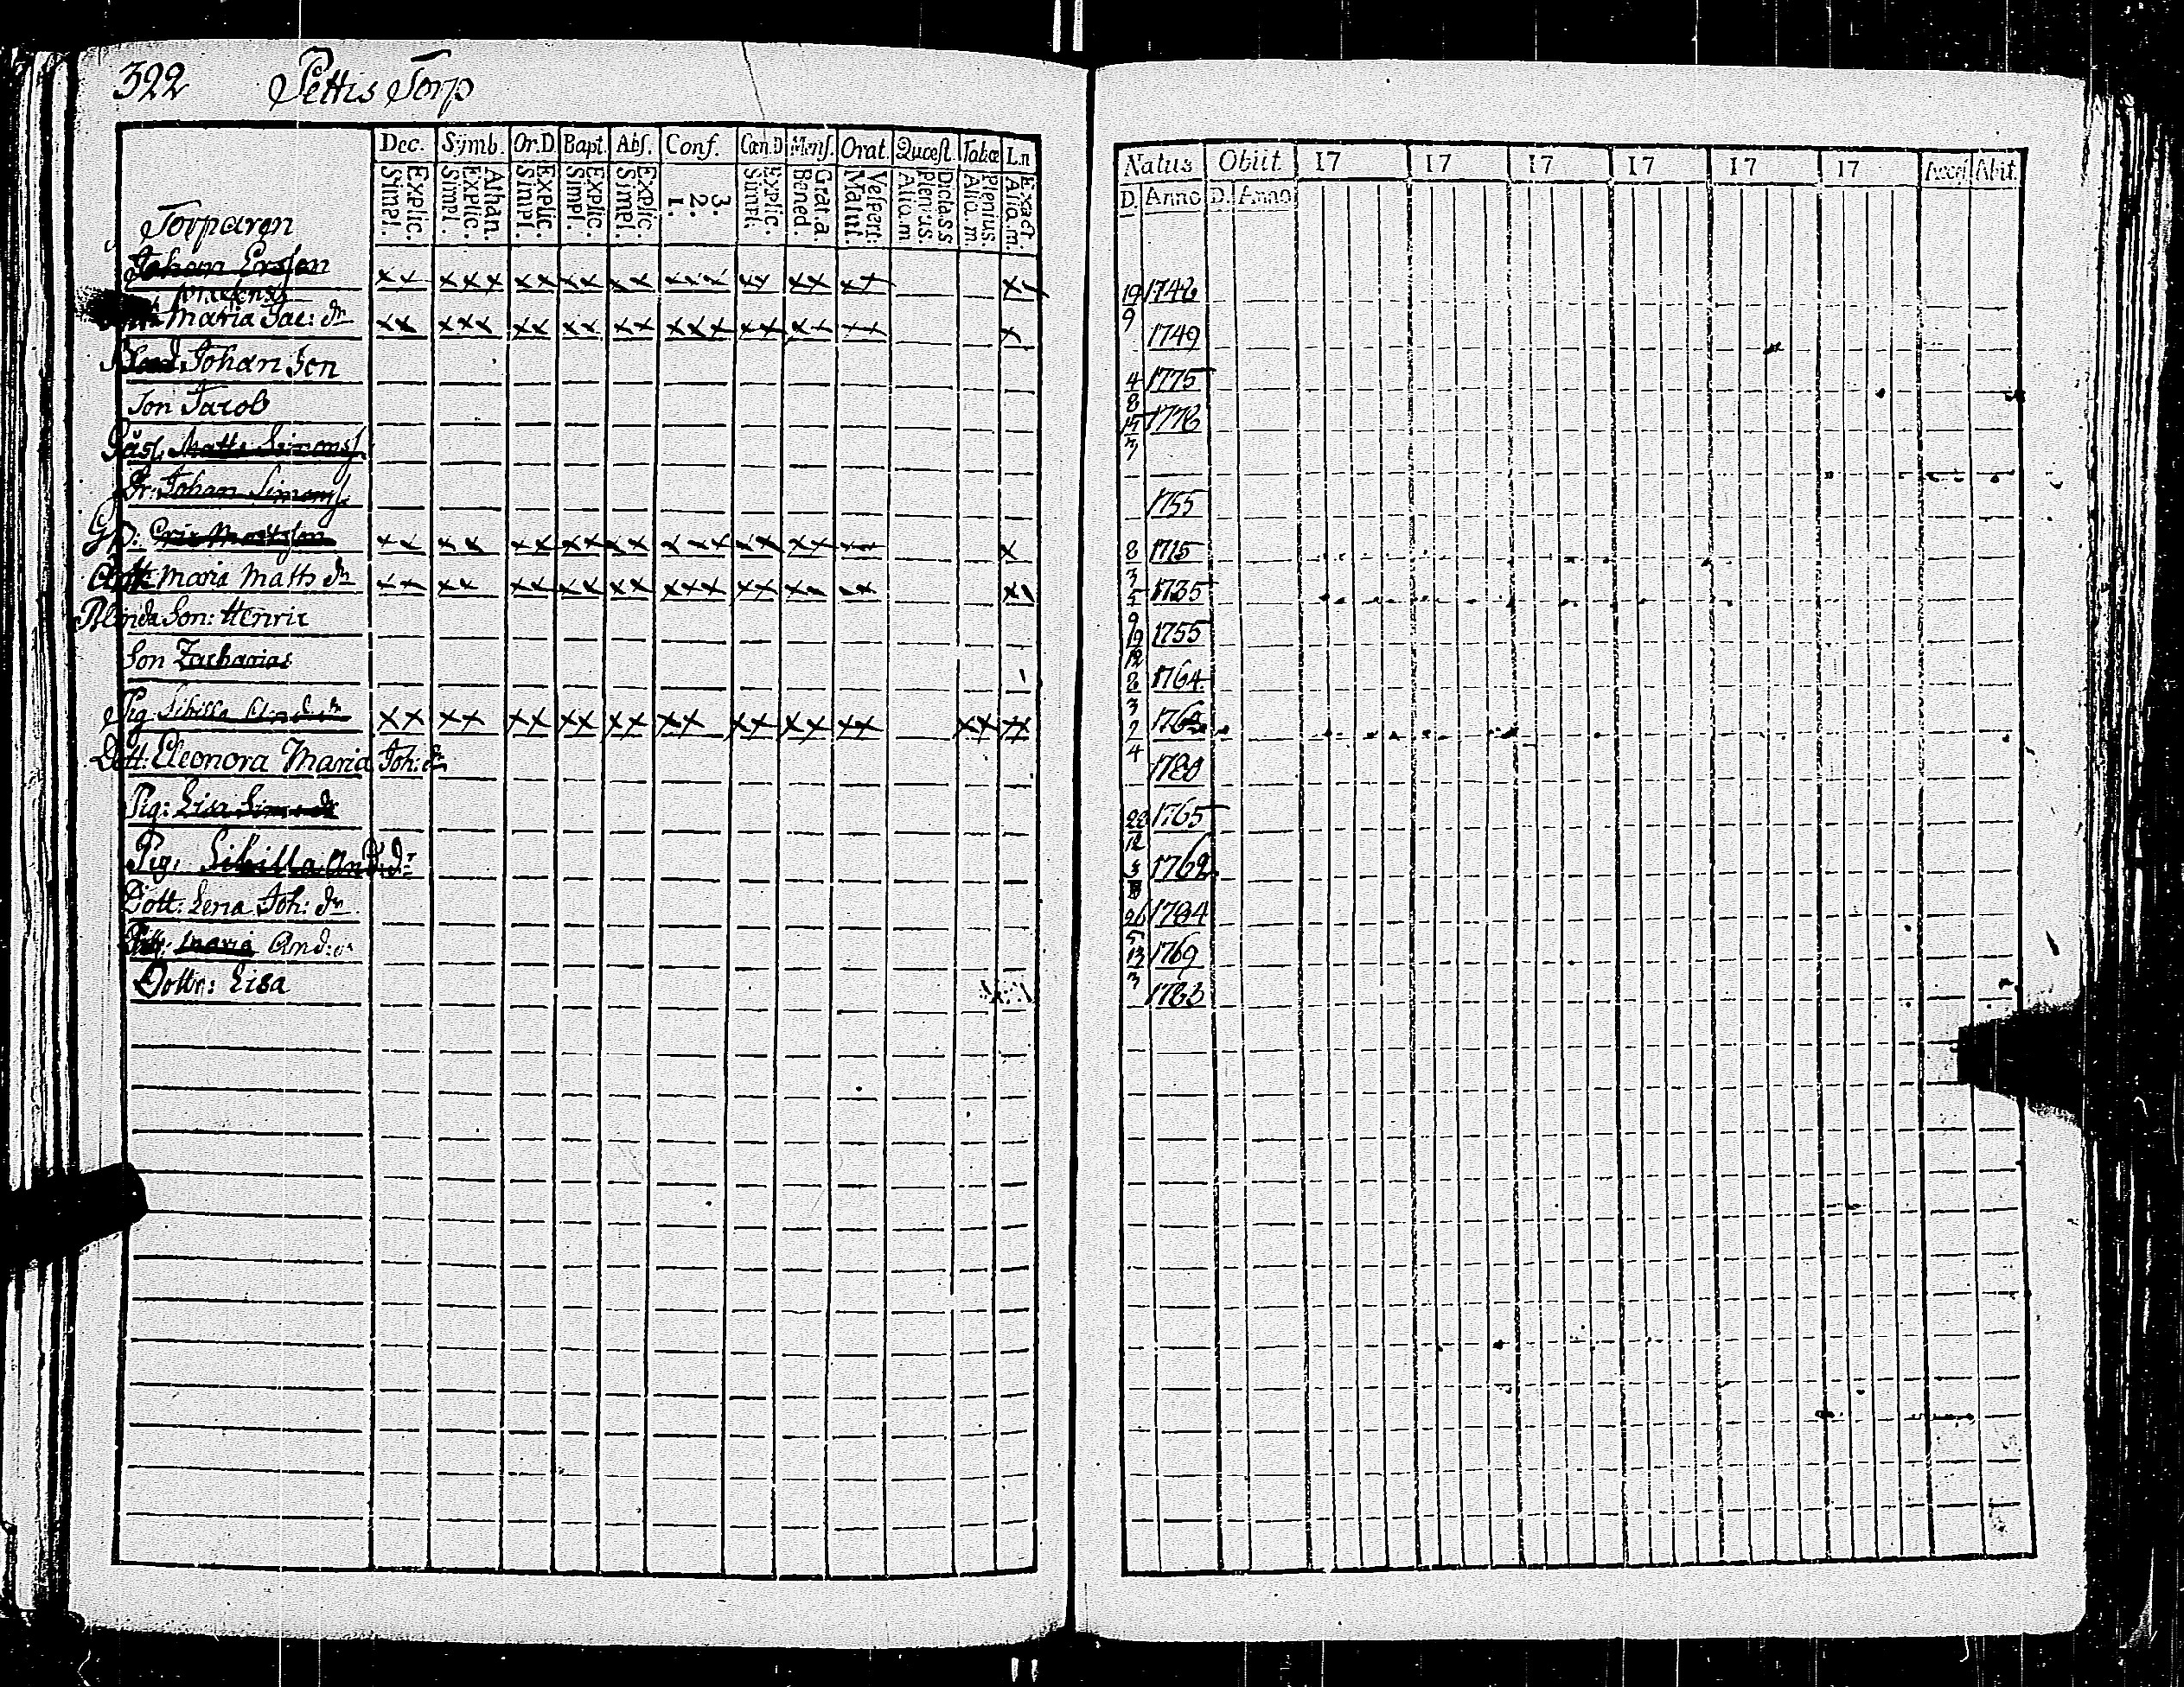 322 Pettis Torp
Dec. Symb. Or.D. Bapt. Abs. Conf. Cœn.D Mens. Orat. Quæst. Tabæ Ln
Explic. Simpl. Athan. Explic. Simpl. Explic. Simpl. Explic. Simpl. Explic. Simpl. 3. 2. 1. Explic. Simpl. Grat. a. Bened. Vespert. Matut. Dicta.s.s. Plenius. Alio.m Plenius. Alio.m. Exact. Alio.m.
Natus Obiit 17 17 17 17 17 17 Abit.
D. Anno D. Anno
Torparen
Johan Ersson 19/9 1742
Maria Jac: dr 1749
Johan Son 4/8 1775
Son Jacob 1778
Matts Simonss.
Br: Johan Simonss. 1755
Eric Mattsson 8/3 1715
Maria Matts dr 5/9 1735
Blinda Son: Henric 19/12 1755
Son Zacharias 2/3 1764
Pig. Sibilla And. dr 2/4 176
Dott: Eleonora Maria Joh: dr 1780
Pig: Lisa 22/12 1765
Pig. Sibilla And: dr 1762
Dott: Lena Joh: dr 26/5 1784
Maria And: dr 13/3 1769
Dottr: Lisa